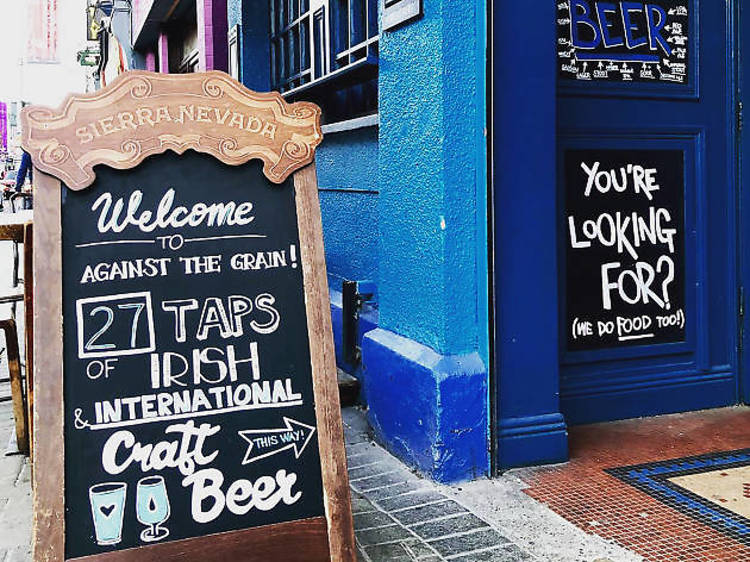 SIERRA NEVADA
Welcome
TO
AGAINST THE GRAIN!
27 TAPS
OF IRISH
& INTERNATIONAL
Craft
THIS WAY!
Beer
BEER
YOU'RE
LOOKING
FOR?
(WE DO FOOD TOO!)